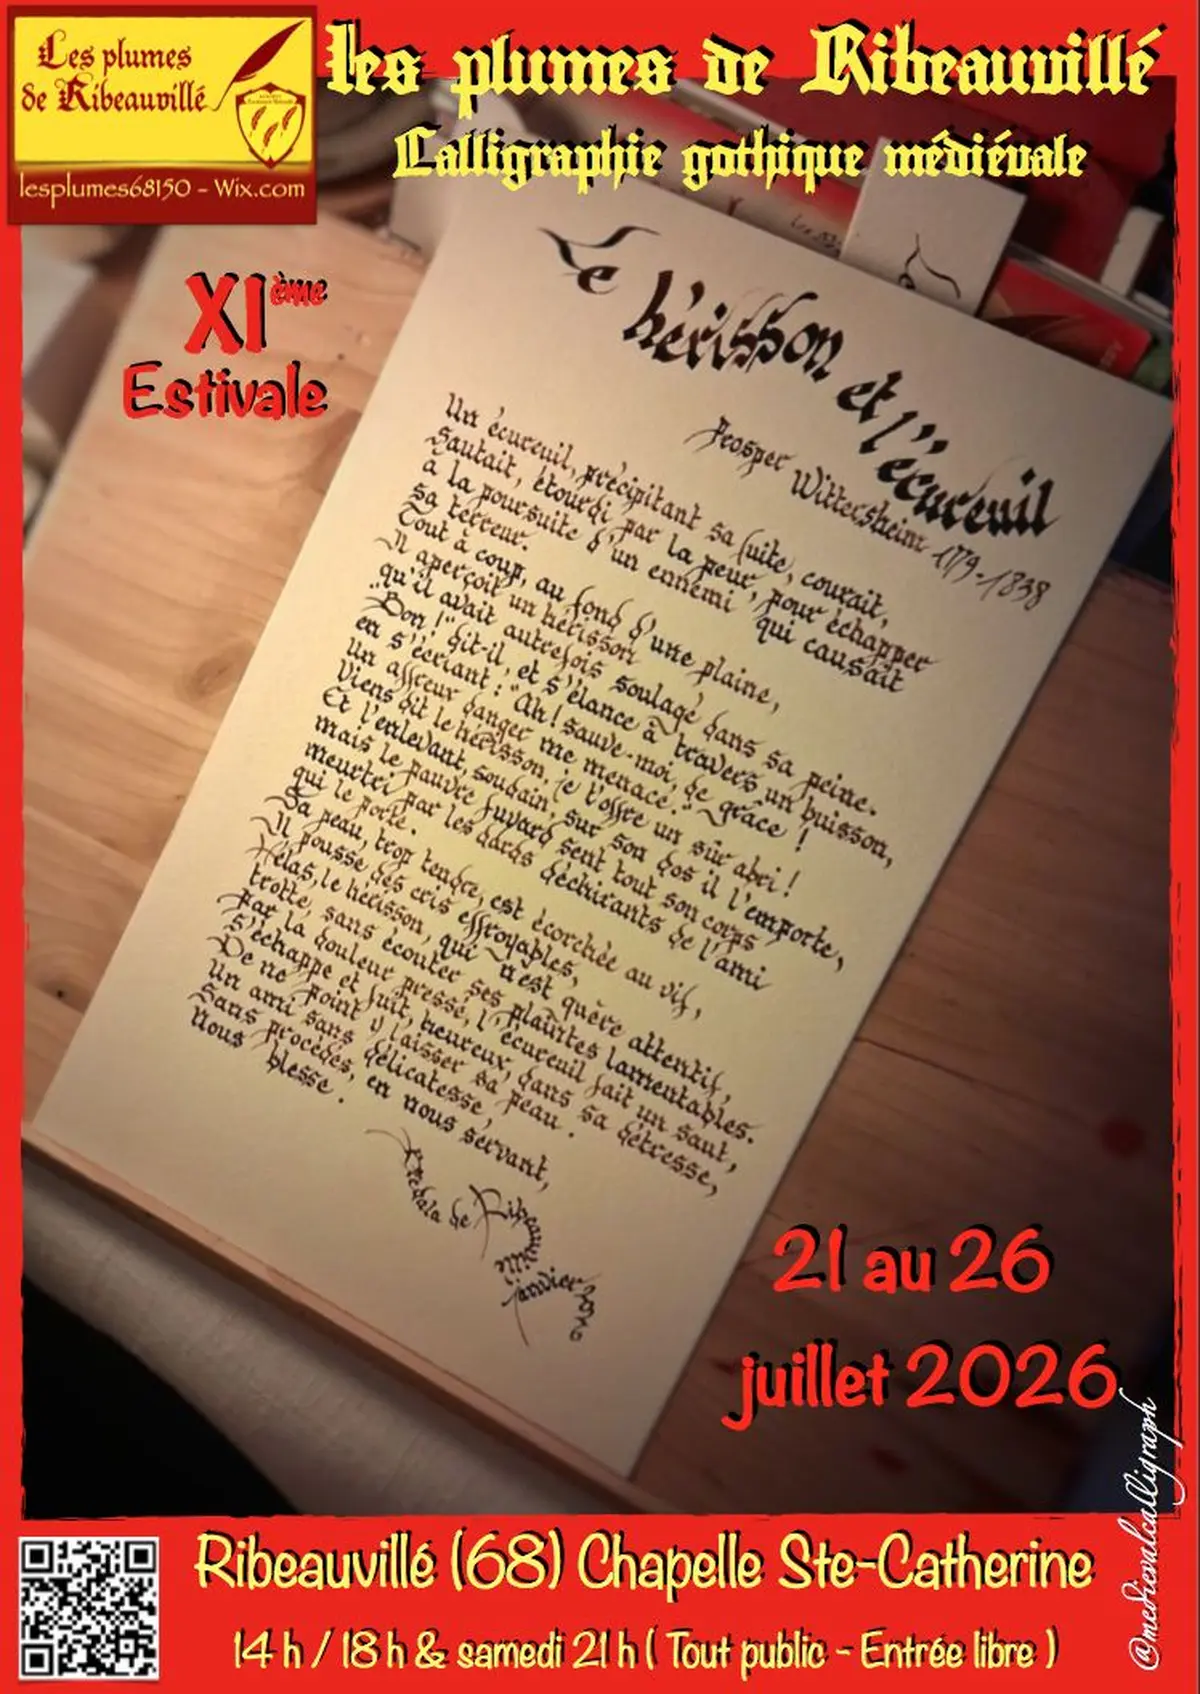 Les plumes
de Ribeauvillé
lesplumes68150 - Wix.com
Les plumes de Ribeauvillé
Calligraphie gothique médiévale
XIème
Estivale
Le hérisson et l'écureuil
Prosper Wittersheim 1779-1838
Un écureuil, précipitant sa fuite, courait,
Sautait, étourdi par la peur, pour échapper
à la poursuite d'un ennemi qui causait
sa terreur.
Tout à coup, au fond d'une plaine,
Il aperçoit un hérisson
qu'il avait autrefois soulagé dans sa peine.
"Bon !" dit-il, et s'élance à travers un buisson,
en s'écriant : "Ah ! sauve-moi, de grâce !
Un affreux danger me menace."
Viens dit le hérisson, je t'offre un sûr abri !
Et l'enlevant, soudain, sur son dos il l'emporte,
mais le pauvre fuyard sent tout son corps
meurtri par les dards déchirants de l'ami
qui le porte.
Sa peau, trop tendre, est écorchée au vif,
Il pousse des cris effroyables,
Hélas, le hérisson, qui n'est guère attentif,
trotte, sans écouter ses plaintes lamentables.
Par la douleur pressé, l'écureuil fait un saut,
S'échappe et fuit, heureux, dans sa détresse,
De ne point y laisser sa peau.
Un ami sans délicatesse,
Sans procédés, en nous servant,
Nous blesse.
de Ribeauvillé
janvier 2026
21 au 26
juillet 2026
@medievalcalligraph
Ribeauvillé (68) Chapelle Ste-Catherine
14 h / 18 h & samedi 21 h ( Tout public - Entrée libre )